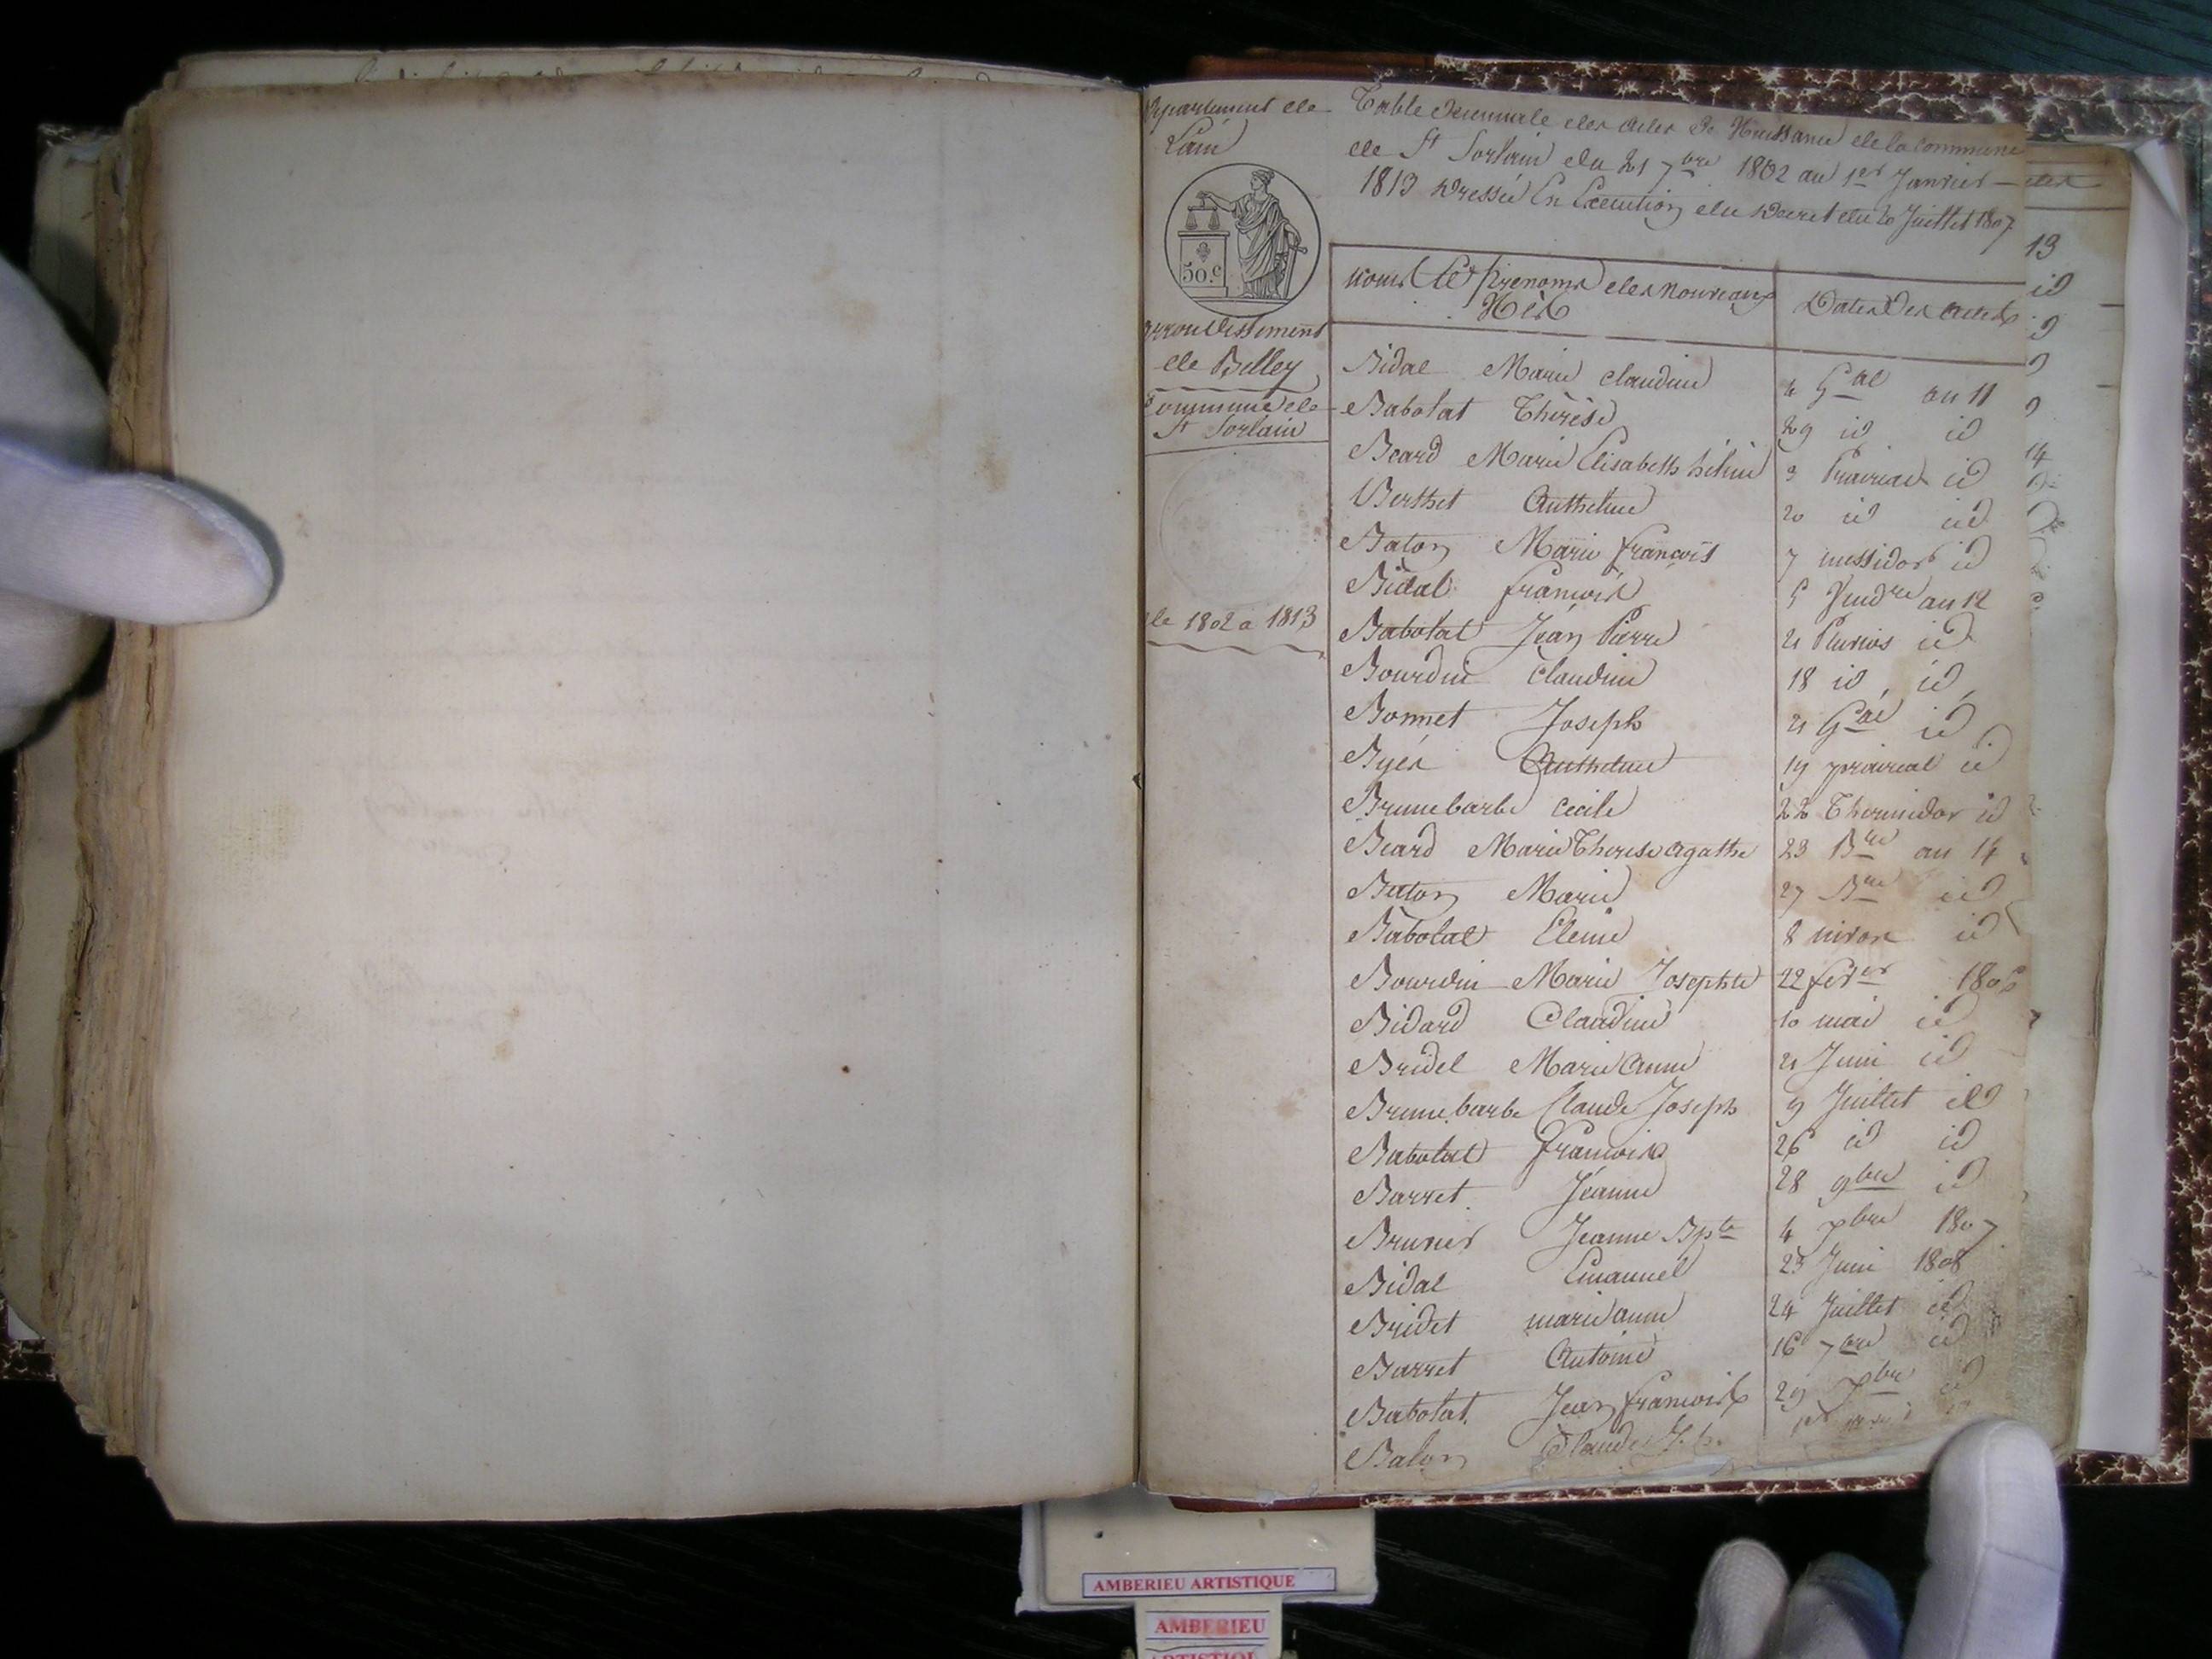 Département de
L'ain
50.c
arrondissement
de Belley
Commune de
St Sorlain
de 1802 a 1813
Table décennale des actes de Naissance de la commune
de St Sorlain du 21 7bre 1802 au 1er Janvier
1813 dressé En Execution du decret du 20 Juillet 1807
noms et prenoms des nouveaux Nés
Dates des actes
Bidal Marie Claudine 4 Gal an 11
Babolat Thérèse 29 id id
Beard Marie Elisabeth 9 Prairial id
Berthet Anthelme 20 id id
Baton Marie françois 7 messidor id
Bidal francois 5 Vendre an 12
Babolat Jean Pierre 21 Pluvios id
Bourdin Claudine 18 id id
Bonnet Joseph 21 Gal id
Byés Anthelme 19 praireal id
Brunebarbe Cecile 22 Thermidor id
Beard Marie Therese agathe 23 Bre an 14
Baton Marie 27 Bre id
Babolat Elenie 8 nivose id
Bourdin Marie Josephte 22 fevr 1806
Bidard Claudine 10 mai id
Bridel Marie Anne 21 Juin id
Brunebarbe Claude Joseph 9 Juillet id
Babolat francois 26 id id
Barret Jeanne 28 9bre id
Brunet Jeanne Bpte 4 1807
Bidal Emanuel 23 Juin 1808
Bridet marie anne 24 Juillet id
Barret Antoine 16 7bre id
Babolat Jean francois 29 id
Balon Claude
13
id
14
AMBERIEU ARTISTIQUE
AMBERIEU
ARTISTIQUE